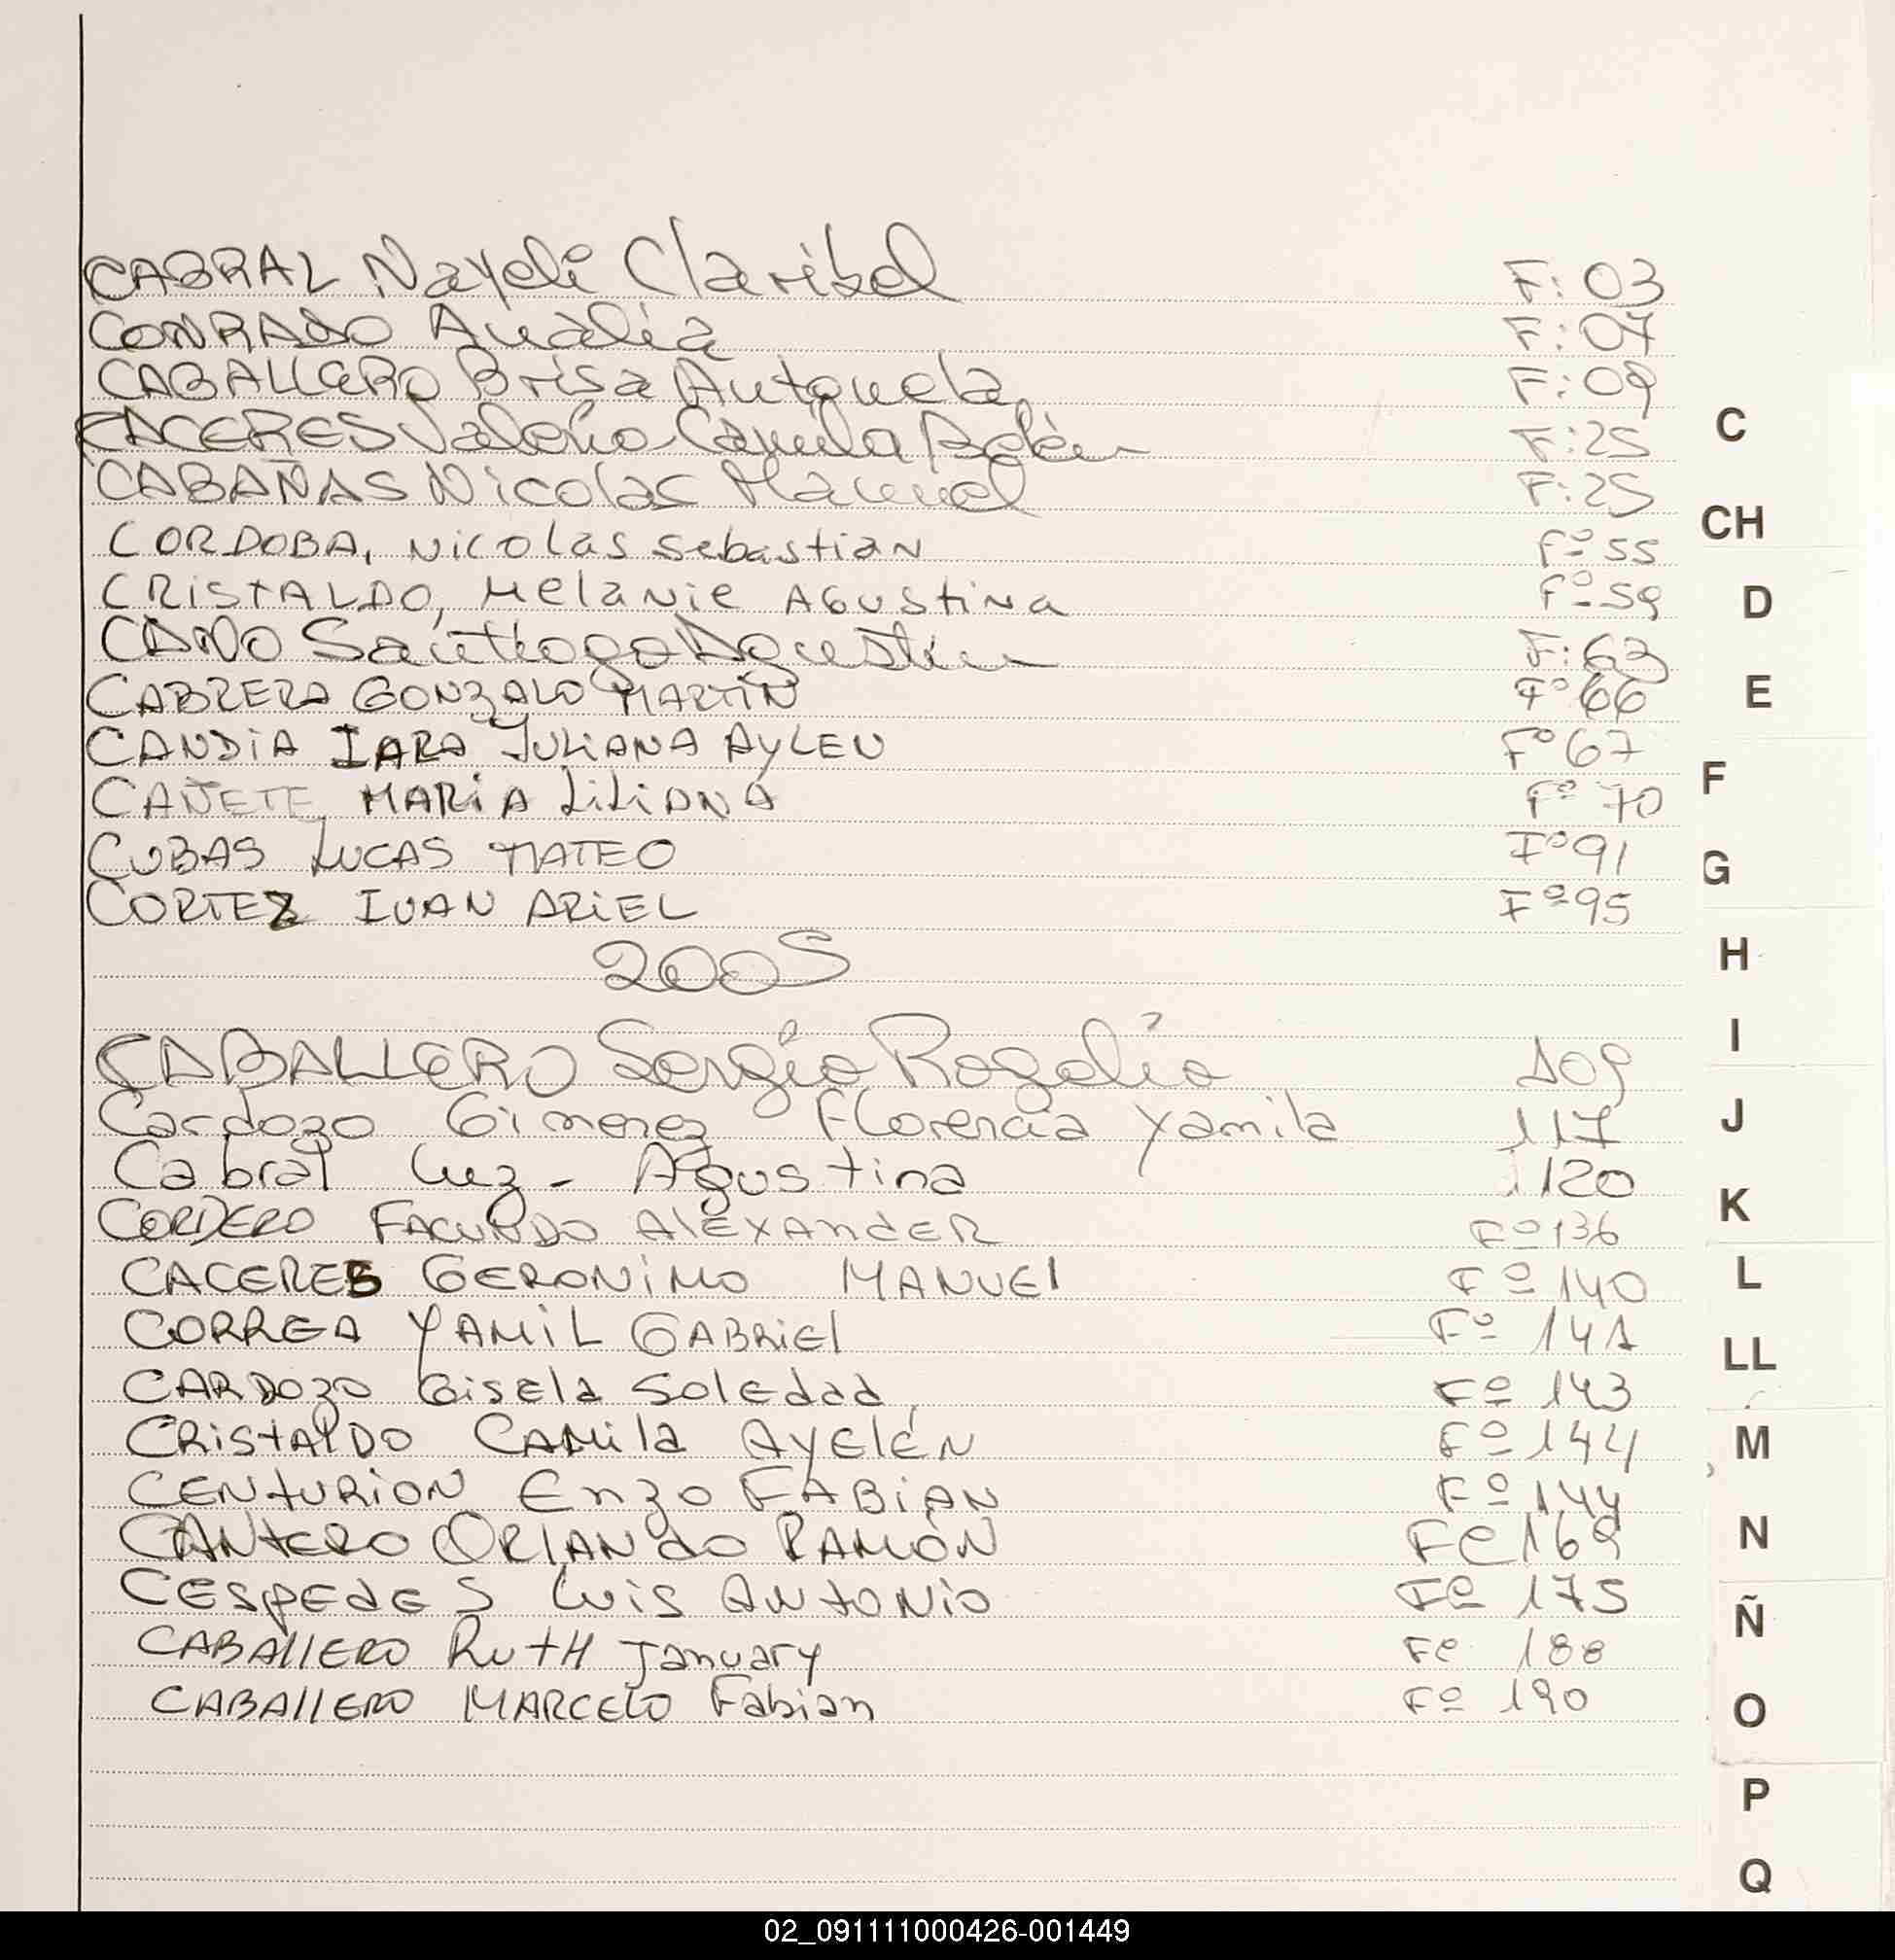 CABRAL Nayeli Claribel F: 03
CONRADO Analia F: 07
CABALLERO Brisa Antonela F: 09
CACERES Valeria Camila Belén F: 25
CABAÑAS Nicolas Manuel F: 25
CORDOBA, Nicolas Sebastian Fº 55
CRISTALDO, Melanie Agustina Fº 59
CANO Santiago Agustin F: 63
CABRERA GONZALO MARTIN Fº 66
CANDIA IARA JULIANA AYLEN Fº 67
CAÑETE MARIA LILIANA Fº 70
CUBAS LUCAS MATEO Fº 91
CORTEZ IVAN ARIEL Fº 95
2005
CABALLERO Sergio Rogelio 109
Cardozo Gimenez Florencia Yamila 117
Cabral Luz - Agustina 120
CORDERO FACUNDO ALEXANDER Fº 136
CACERES GERONIMO MANUEL Fº 140
CORREA YAMIL GABRIEL Fº 141
CARDOZO Gisela Soledad Fº 143
CRISTALDO CAMILA AYELÉN Fº 144
CENTURION Enzo FABIAN Fº 144
CANTERO ORLANDO RAMÓN Fº 169
CESPEDES LUIS ANTONIO Fº 175
CABALLERO RUTH January Fº 188
CABALLERO MARCELO Fabian Fº 190
C
CH
D
E
F
G
H
I
J
K
L
LL
M
N
Ñ
O
P
Q
02_091111000426-001449